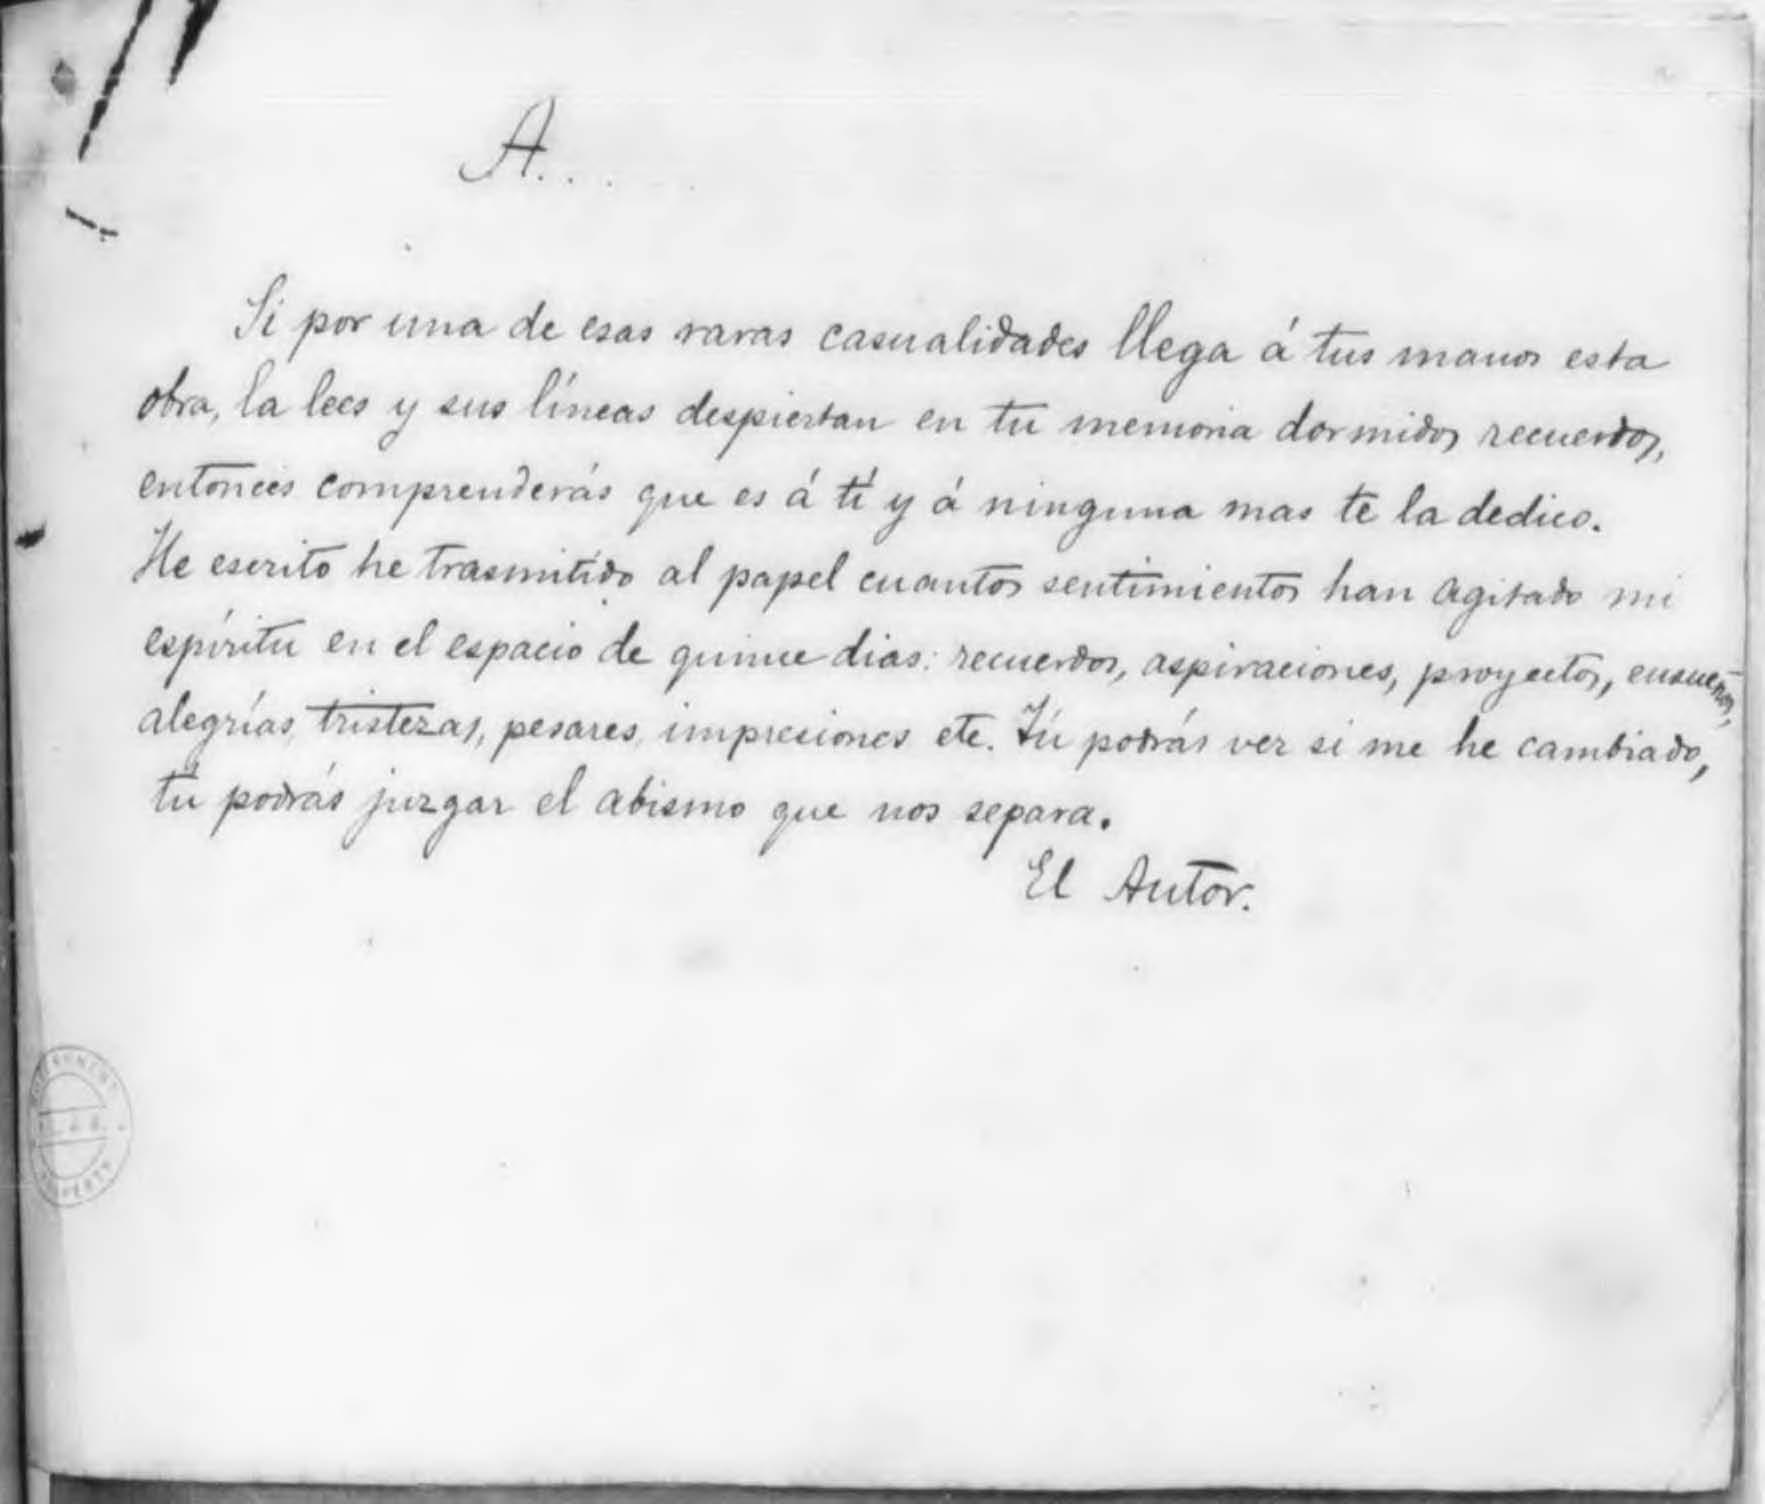 A....
Si por una de esas raras casualidades llega á tus manos esta
obra, la lees y sus líneas despiertan en tu memoria dormidos recuerdos,
entonces comprenderás que es á tí y á ninguna mas te la dedico.
He escrito he trasmitido al papel cuantos sentimientos han agitado mi
espíritu en el espacio de quince dias: recuerdos, aspiraciones, proyectos, ensueños,
alegrías, tristezas, pesares, impresiones etc. Tú podrás ver si me he cambiado,
tú podrás juzgar el abismo que nos separa.
El Autor.